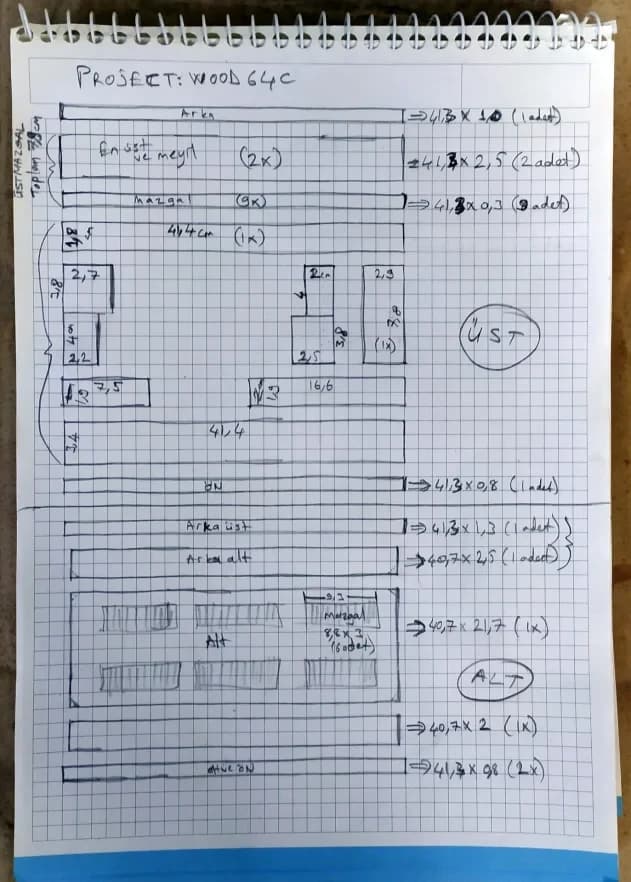 PROJECT: WOOD 64C
Arka ⇒ 41,3 x 1,0 (1 adet)
ÜST MAZGAL
Toplam cm
En üst ve meyil (2x) = 41,3 x 2,5 (2 adet)
mazgal (9x) ⇒ 41,3 x 0,3 (9 adet)
1,8 5 41,4cm (1x)
2,7 2cm 2,9
3,8 4 3,8 7,8
4cm (1x)
2,2 2,5
ÜST
7,5 16,6
3,4 41,4
ÖN ⇒ 41,3 x 0,8 (1 adet)
Arka üst ⇒ 41,3 x 1,3 (1 adet)
Arka alt ⇒ 40,7 x 2,5 (1 adet)
9,3
mazgal
8,8 x 3
(6 adet)
Alt ⇒ 40,7 x 21,7 (1x)
ALT
⇒ 40,7 x 2 (1x)
ÖN ⇒ 41,3 x 0,8 (2x)